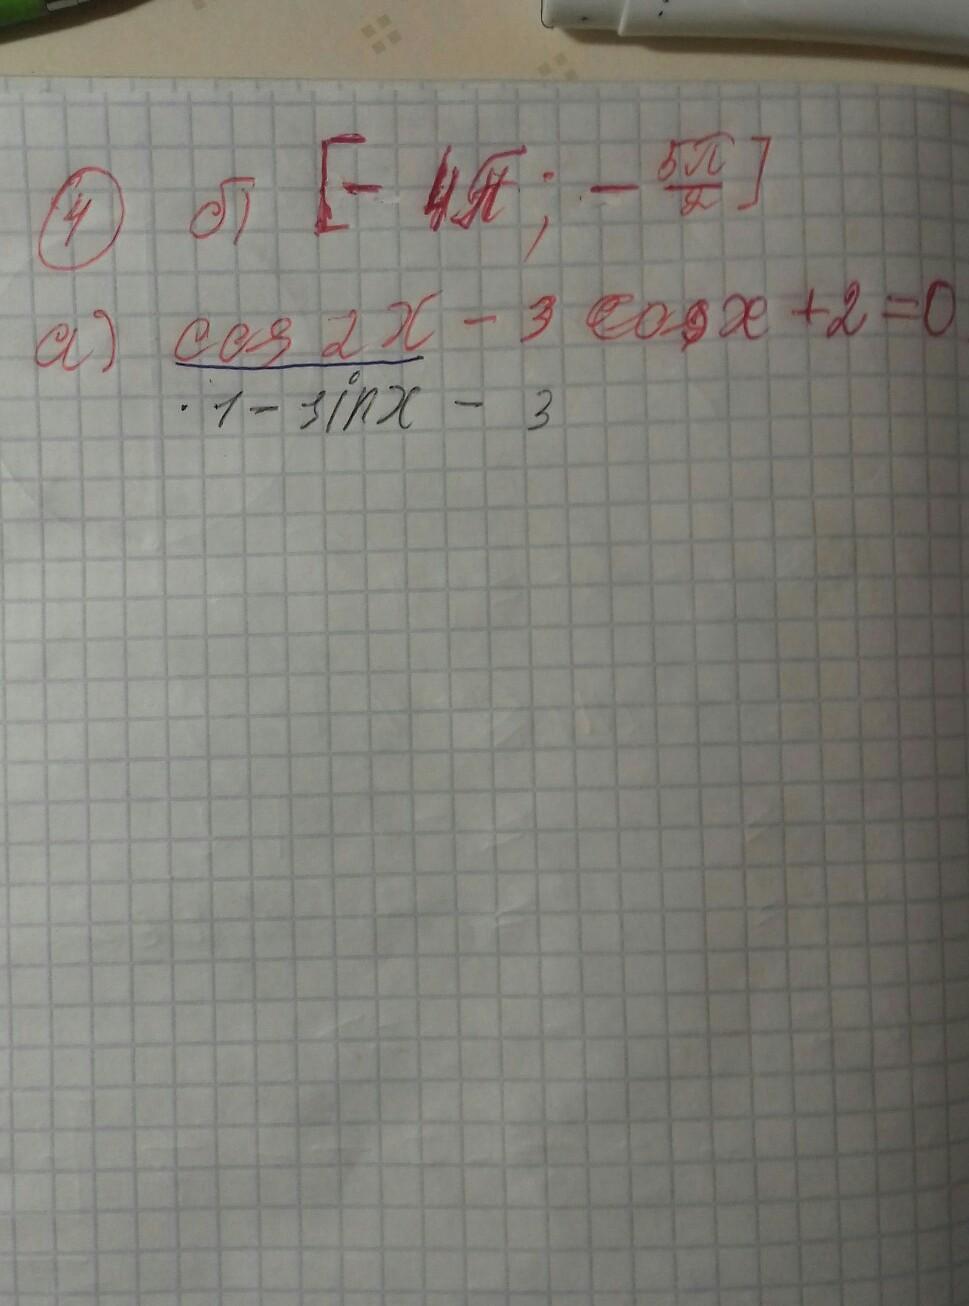 4 б) [- 4π; - 5π/2]
а) cos 2x - 3 cos x + 2 = 0
· 1 - sin x - 3